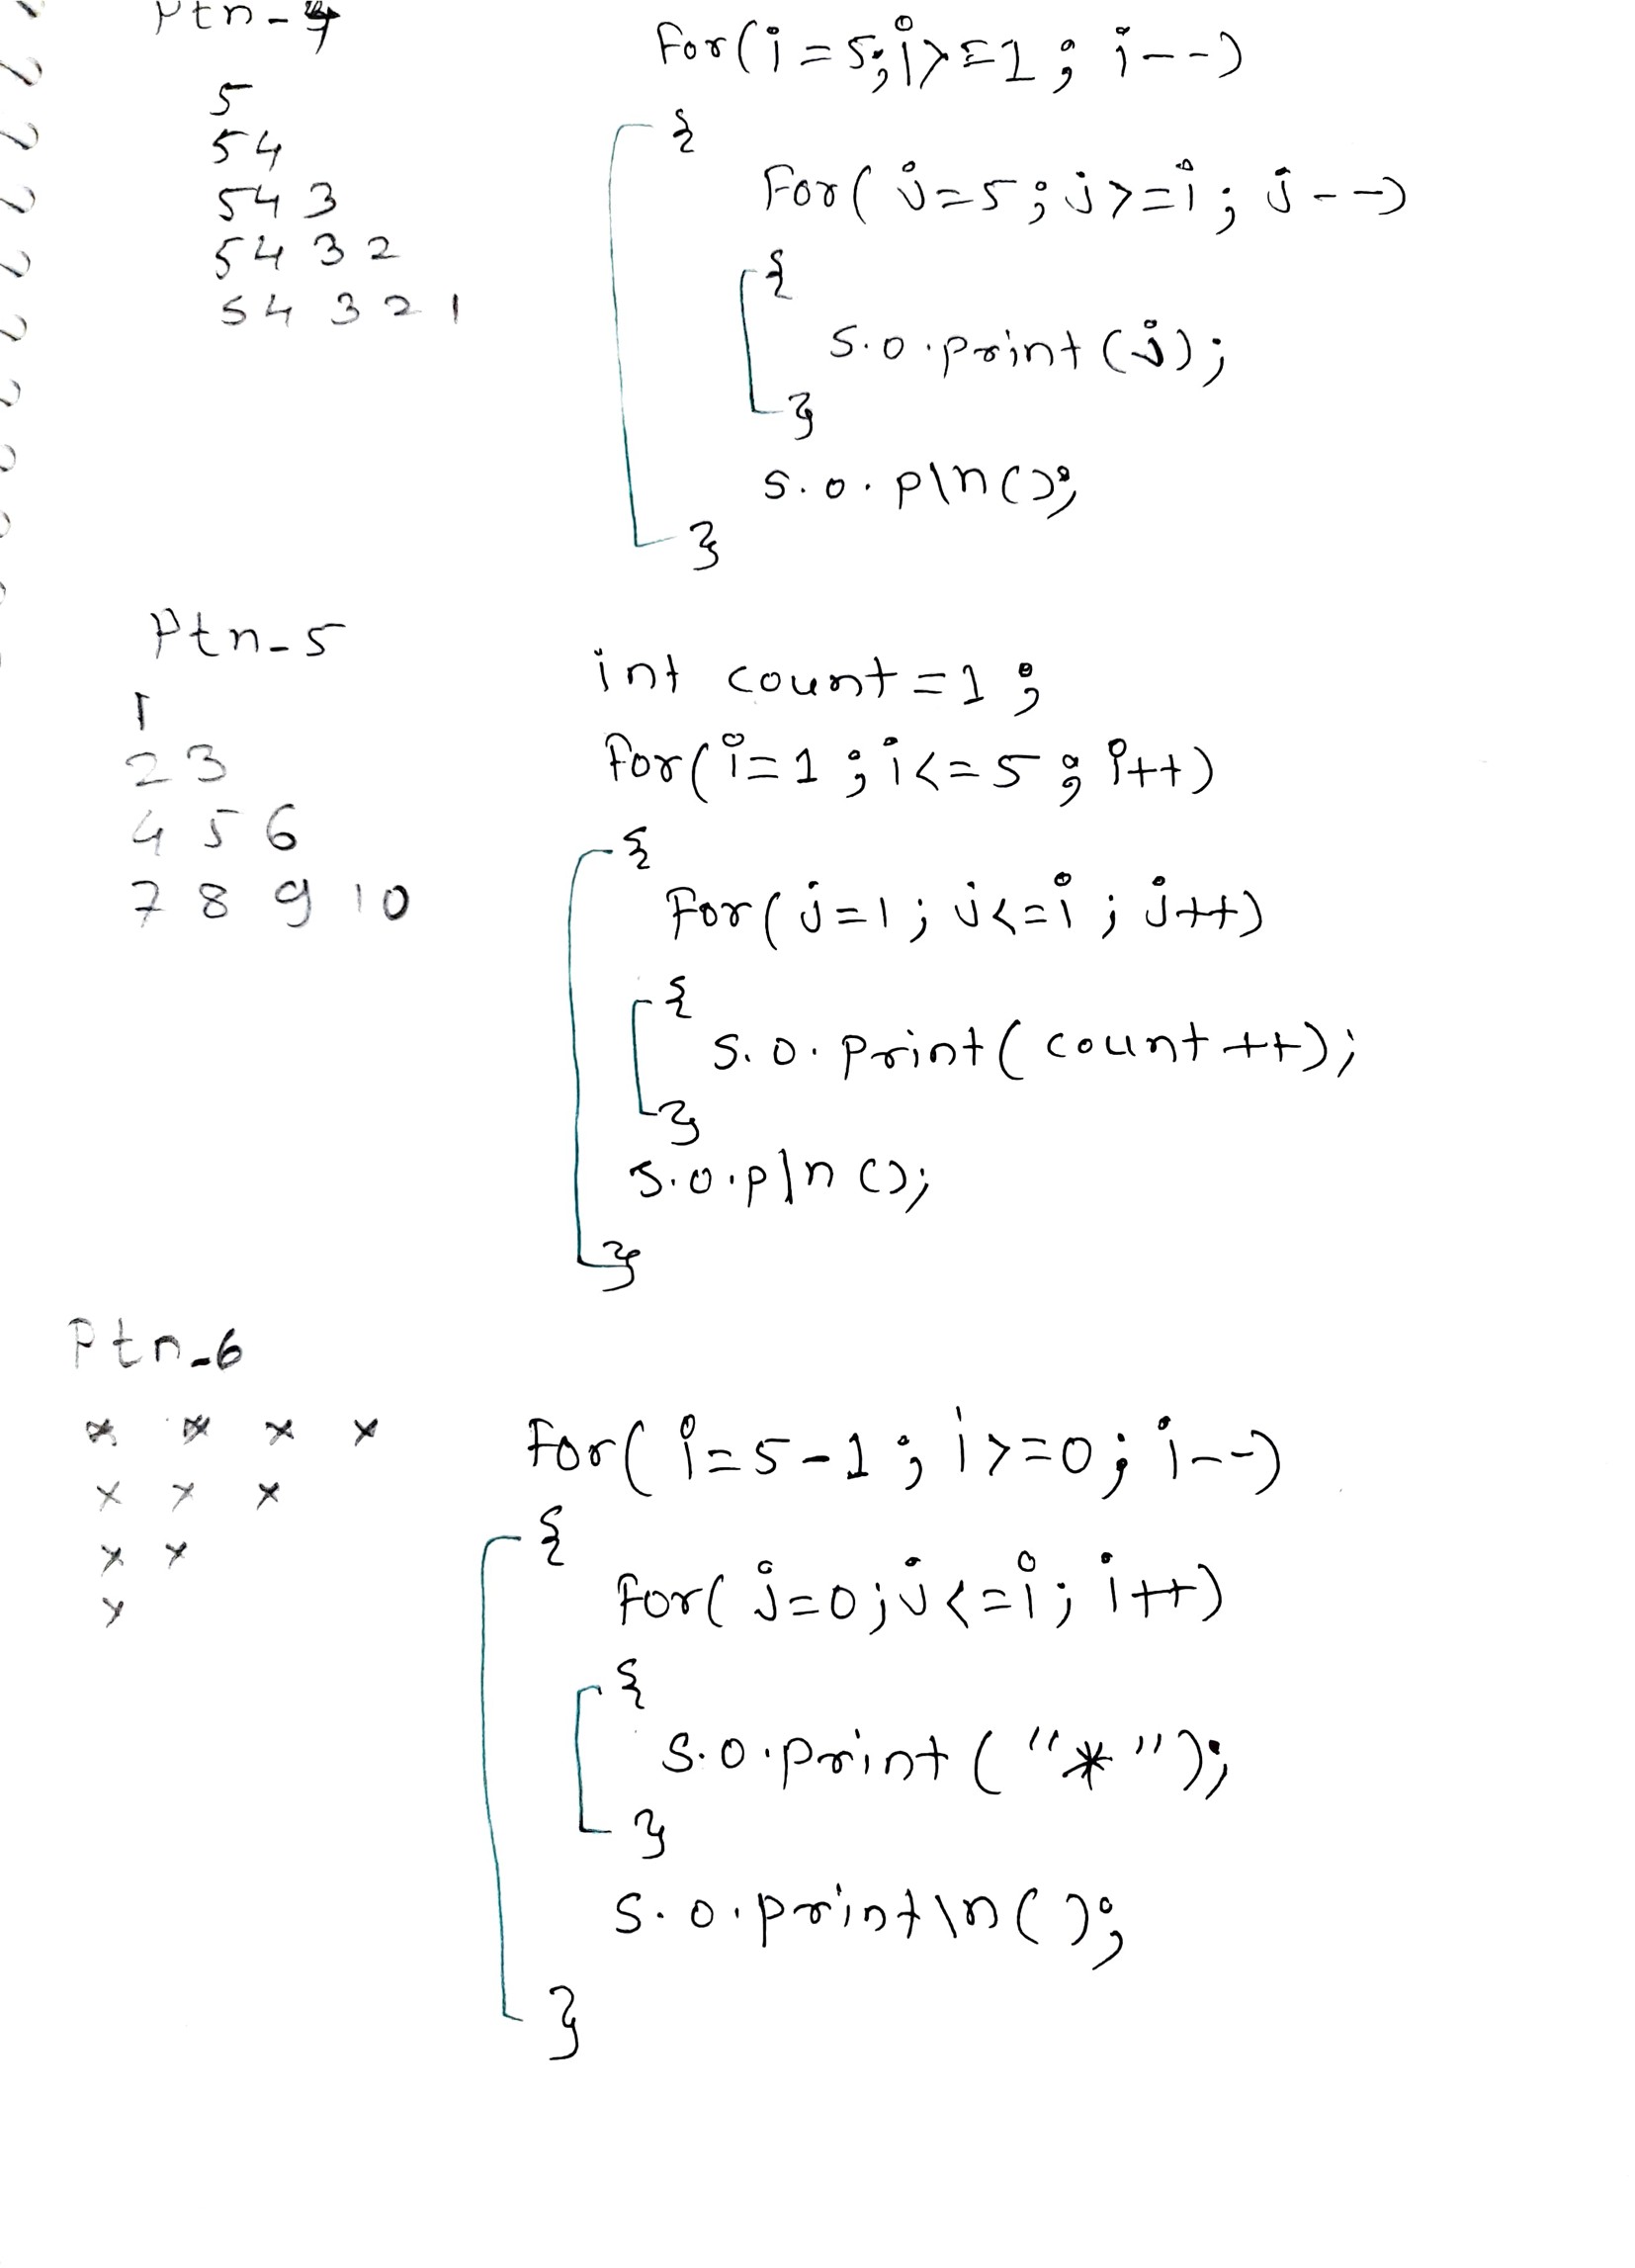 Ptn-4
5
54
543
54 3 2
54 3 2 1
For(i=5;i>=1; i--)
{
For(j=5;j>=i; j--)
{
S.o.print(j);
}
S.o.pln();
}
Ptn-5
1
2 3
4 5 6
7 8 9 10
int count=1;
For(i=1;i<=5;i++)
{
For(j=1; j<=i; j++)
{
S.o.print(count++);
}
S.o.pln();
}
Ptn-6
* * * *
* * *
* *
*
For(i=5-1; i>=0; i--)
{
For(j=0;j<=i; i++)
{
S.o.print("*");
}
S.o.println();
}